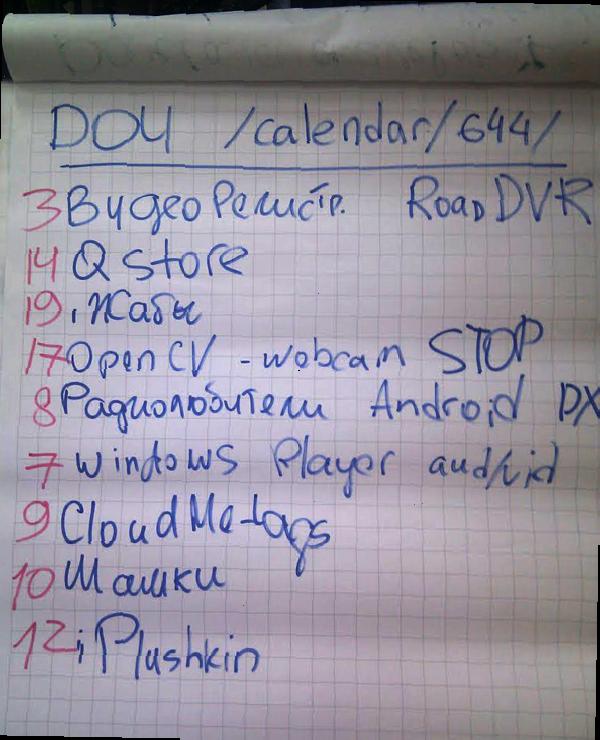 DOU /calendar/644/
3 Видео Регистр. Road DVR
14 Q store
19 , Жабы
17 OpenCV - webcam STOP
8 Радиолюбители Android DX
7 Windows Player aud/vid
9 CloudMetags
10 Шашки
12 iPlushkin